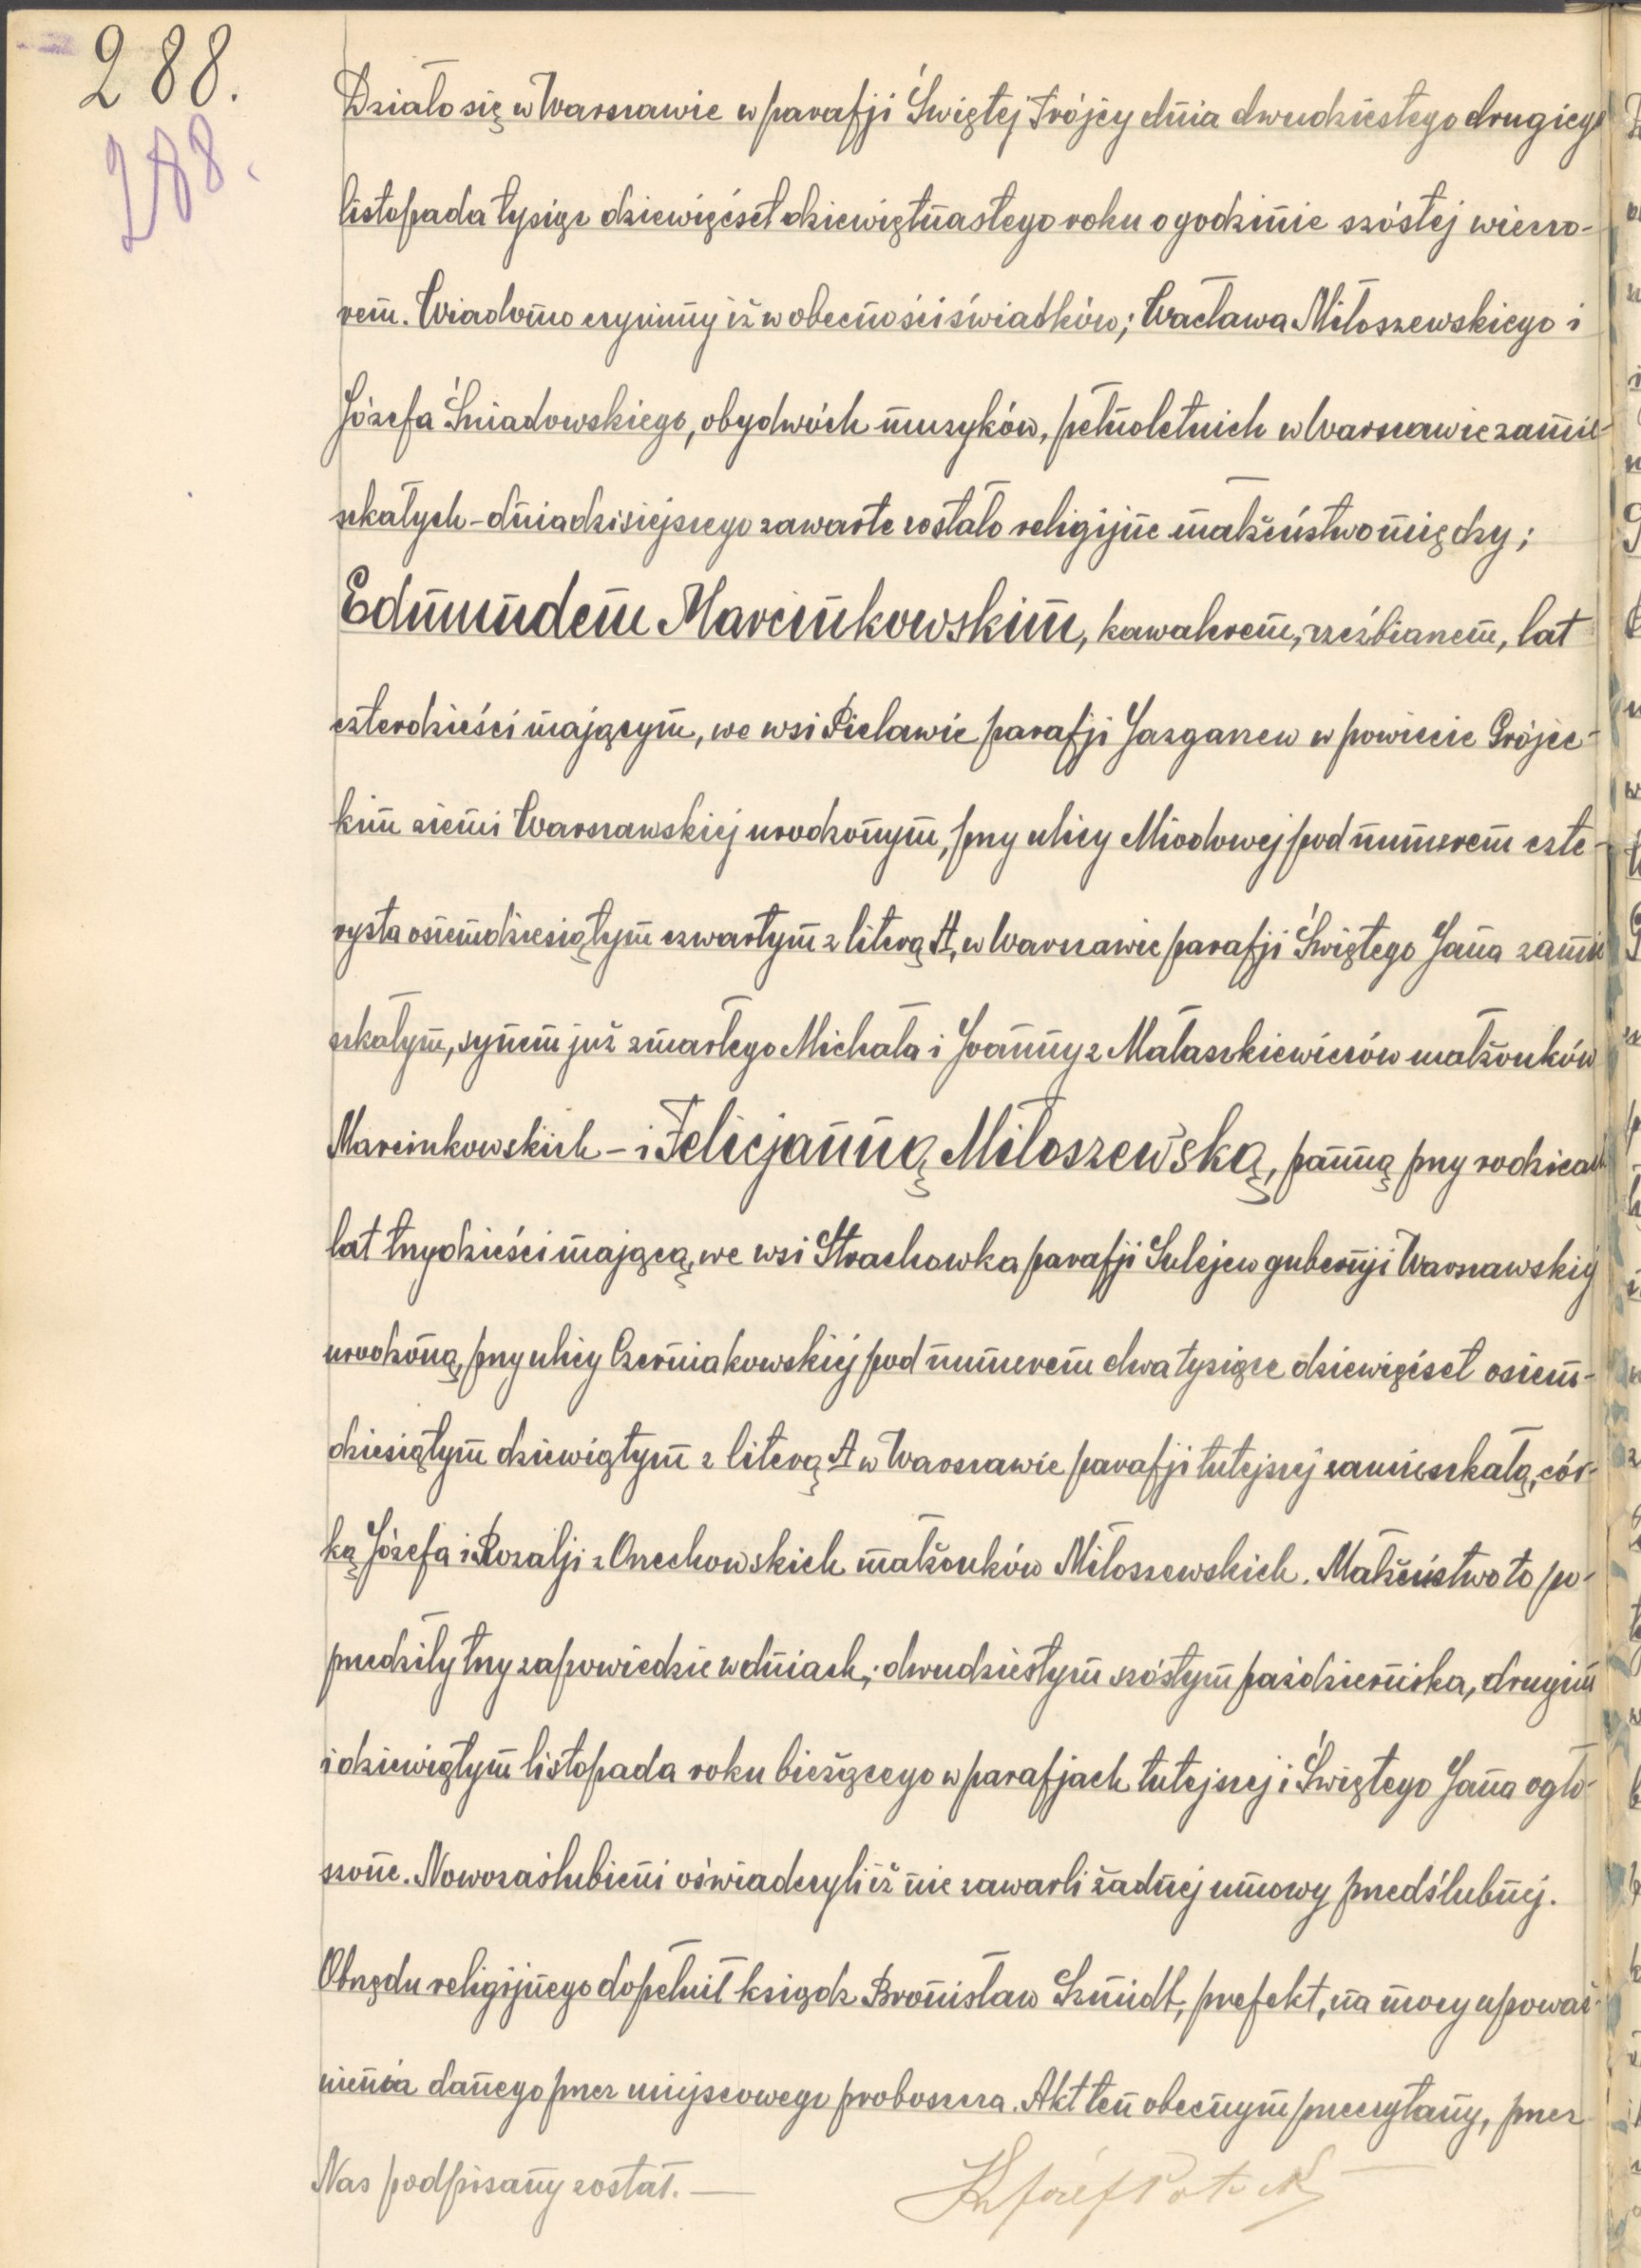 288.
288.
Działo się w Warszawie w parafji Świętej Trójcy dnia dwudziestego drugiego
listopada tysiąc dziewięćset dziewiętnastego roku o godzinie szóstej wieczo-
rem. Wiadomo czynimy iż w obecności świadków; Wacława Miłoszewskiego i
Józefa Śniadowskiego, obydwóch muzyków, pełnoletnich w Warszawie zamie-
szkałych - dnia dzisiejszego zawarte zostało religijne małżeństwo między;
Edmundem Marcinkowskim, kawalerem, rzeźbiarzem, lat
czterdzieści mającym, we wsi Pielawie parafji Jazgarzew w powiecie Grójec-
kim ziemi Warszawskiej urodzonym, przy ulicy Miodowej pod numerem czte-
rysta osiemdziesiątym czwartym z literą A, w Warszawie parafji Świętego Jana zamie
szkałym, synem już zmarłego Michała i Joanny z Mataszkiewiczów małżonków
Marcinkowskich - i Felicjanną Miłoszewską, panną przy rodzicach
lat trzydzieści mającą, we wsi Strachowka parafji Sulejew gubernji Warszawskiej
urodzoną, przy ulicy Czerniakowskiej pod numerem dwa tysiące dziewięćset osiem-
dziesiątym dziewiątym z literą A w Warszawie parafji tutejszej zamieszkałą, cór-
ką Józefa i Rozalji z Orzechowskich małżonków Miłoszewskich. Małżeństwo to po-
przedziły trzy zapowiedzie w dniach; dwudziestym szóstym października, drugim
i dziewiątym listopada roku bieżącego w parafjach tutejszej i Świętego Jana ogło-
szone. Nowozaślubieni oświadczyli iż nie zawarli żadnej umowy przedślubnej.
Obrzędu religijnego dopełnił ksiądz Bronisław Szmidt, prefekt, na mocy upoważ-
nienia danego przez miejscowego proboszcza. Akt ten obecnym przeczytany, przez
Nas podpisany został. —